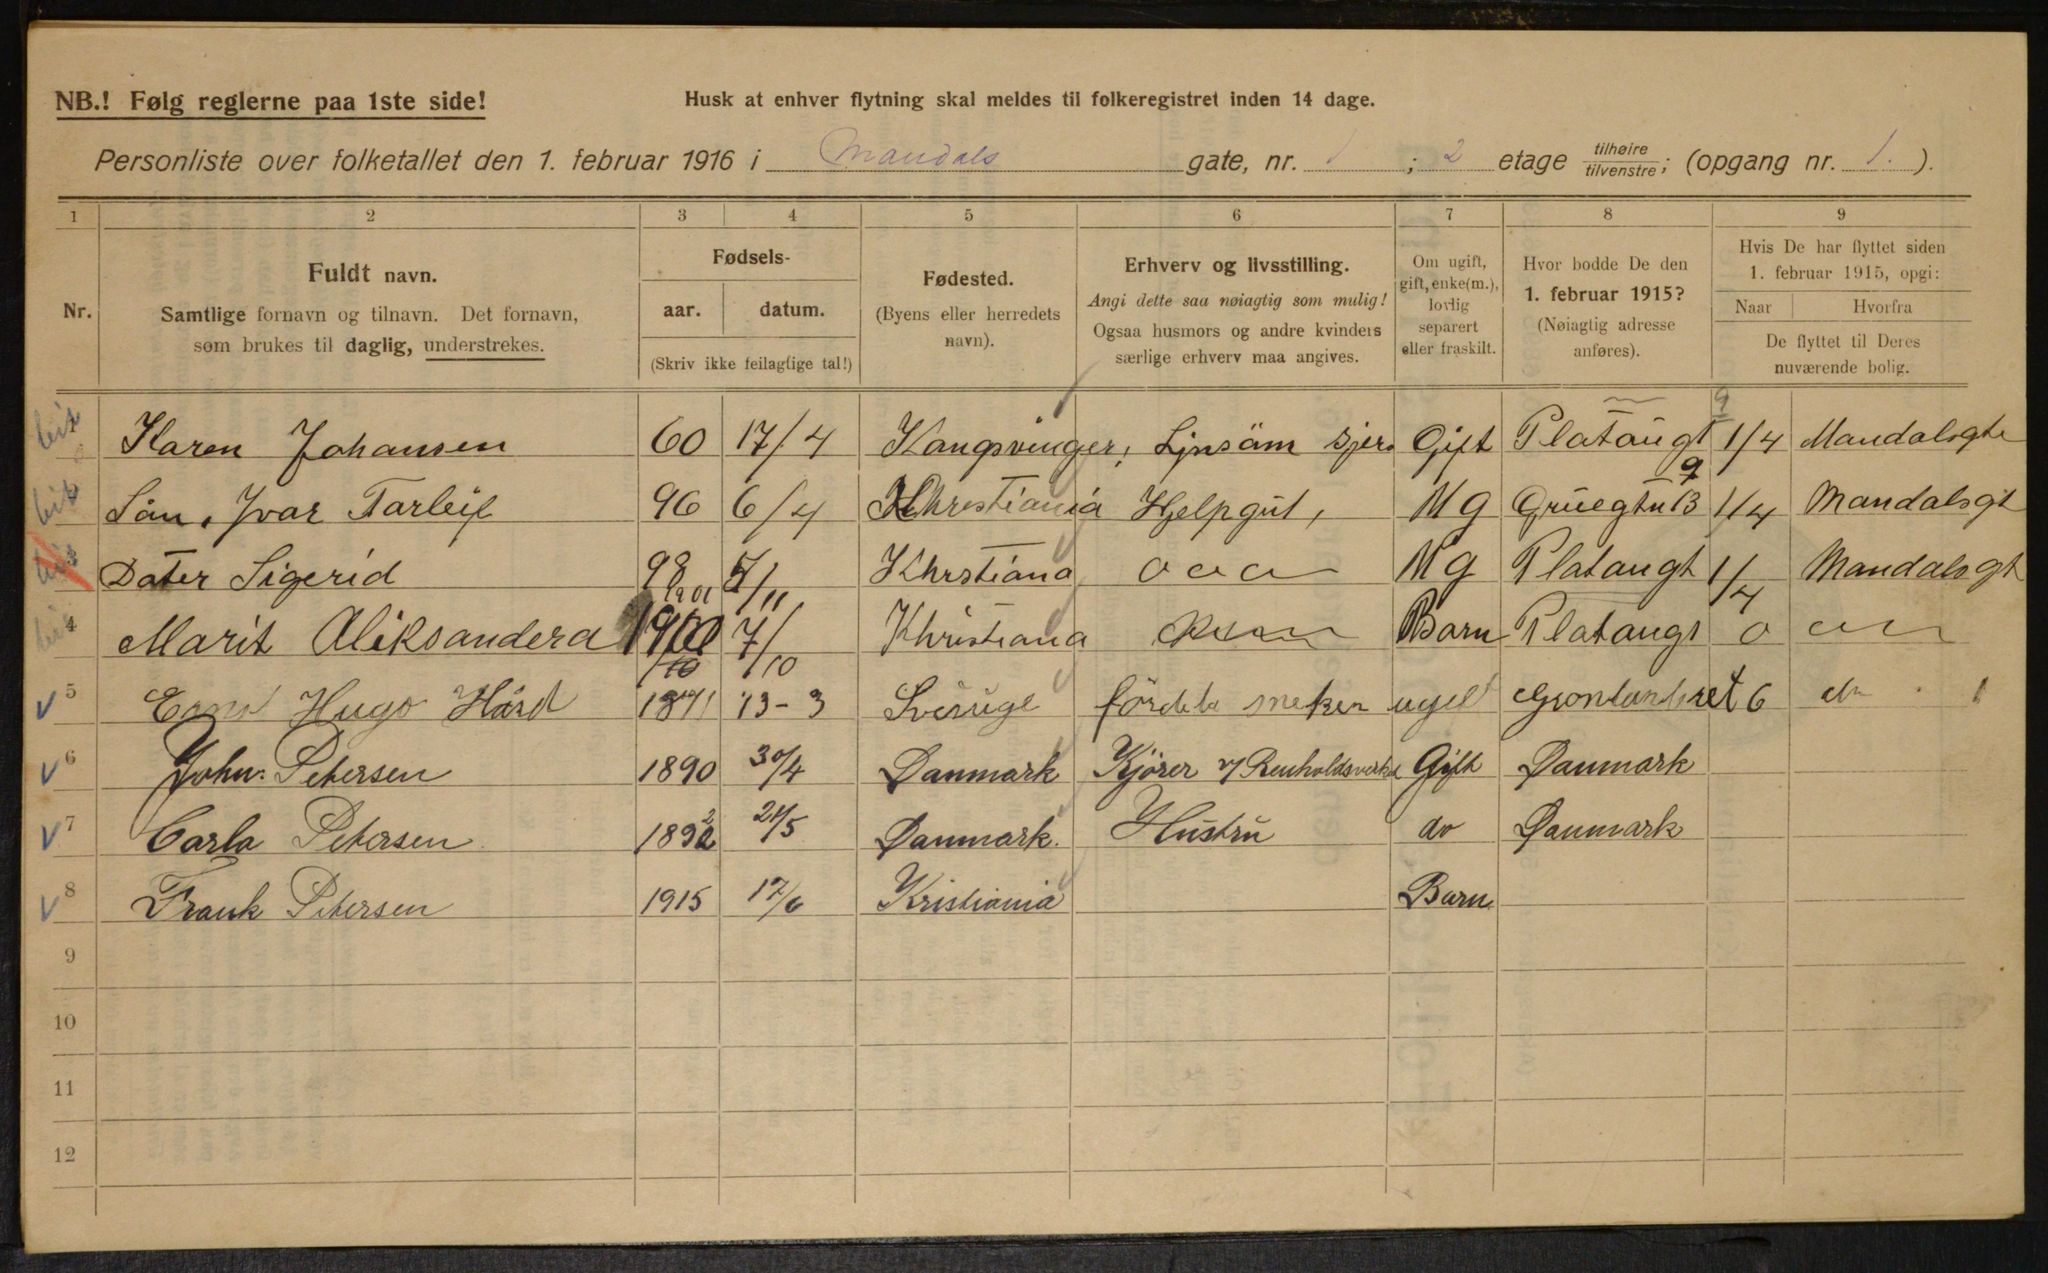 NB.! Følg reglerne paa 1ste side!
Husk at enhver flytning skal meldes til folkeregistret inden 14 dage.
Personliste over folketallet den 1. februar 1916 i Mandals gate, nr. 1 ; 2 etage tilhøire/tilvenstre; (opgang nr. 1.).
1 2 3 4 5 6 7 8 9
Nr.
Fuldt navn.
Samtlige fornavn og tilnavn. Det fornavn,
som brukes til daglig, understrekes.
Fødsels-
aar. datum.
(Skriv ikke feilagtige tal!)
Fødested.
(Byens eller herredets
navn).
Erhverv og livsstilling.
Angi dette saa nøiagtig som mulig!
Ogsaa husmors og andre kvinders
særlige erhverv maa angives.
Om ugift,
gift, enke(m.),
lovlig
separert
eller fraskilt.
Hvor bodde De den
1. februar 1915?
(Nøiagtig adresse
anføres).
Hvis De har flyttet siden
1. februar 1915, opgi:
Naar Hvorfra
De flyttet til Deres
nuværende bolig.
Karen Johansen 60 17/4 Kongsvinger, Gift Plataugt 1/4 Mandalsgte
Sön, Ivar Tarleif 96 6/4 Khrestiania Hjelpgut, Ug 1/4 Mandalsgt
Dater Sigerid 98 Khrstiana Ug Plataugt 1/4 Mandalsgt
4 Marit Aliksandera 7/10 Khristiana Barn Plataugt
5 Hugo Hård 13-3 6
6 John Petersen 1890 30/4 Danmark Kjörer v/ Renholdsverket Gift Danmark
7 Carla Petersen 1892 21/5 Danmark. Hustru do Danmark
8 Frank Petersen 1915 17/6 Kristiania Barn
9
10
11
12